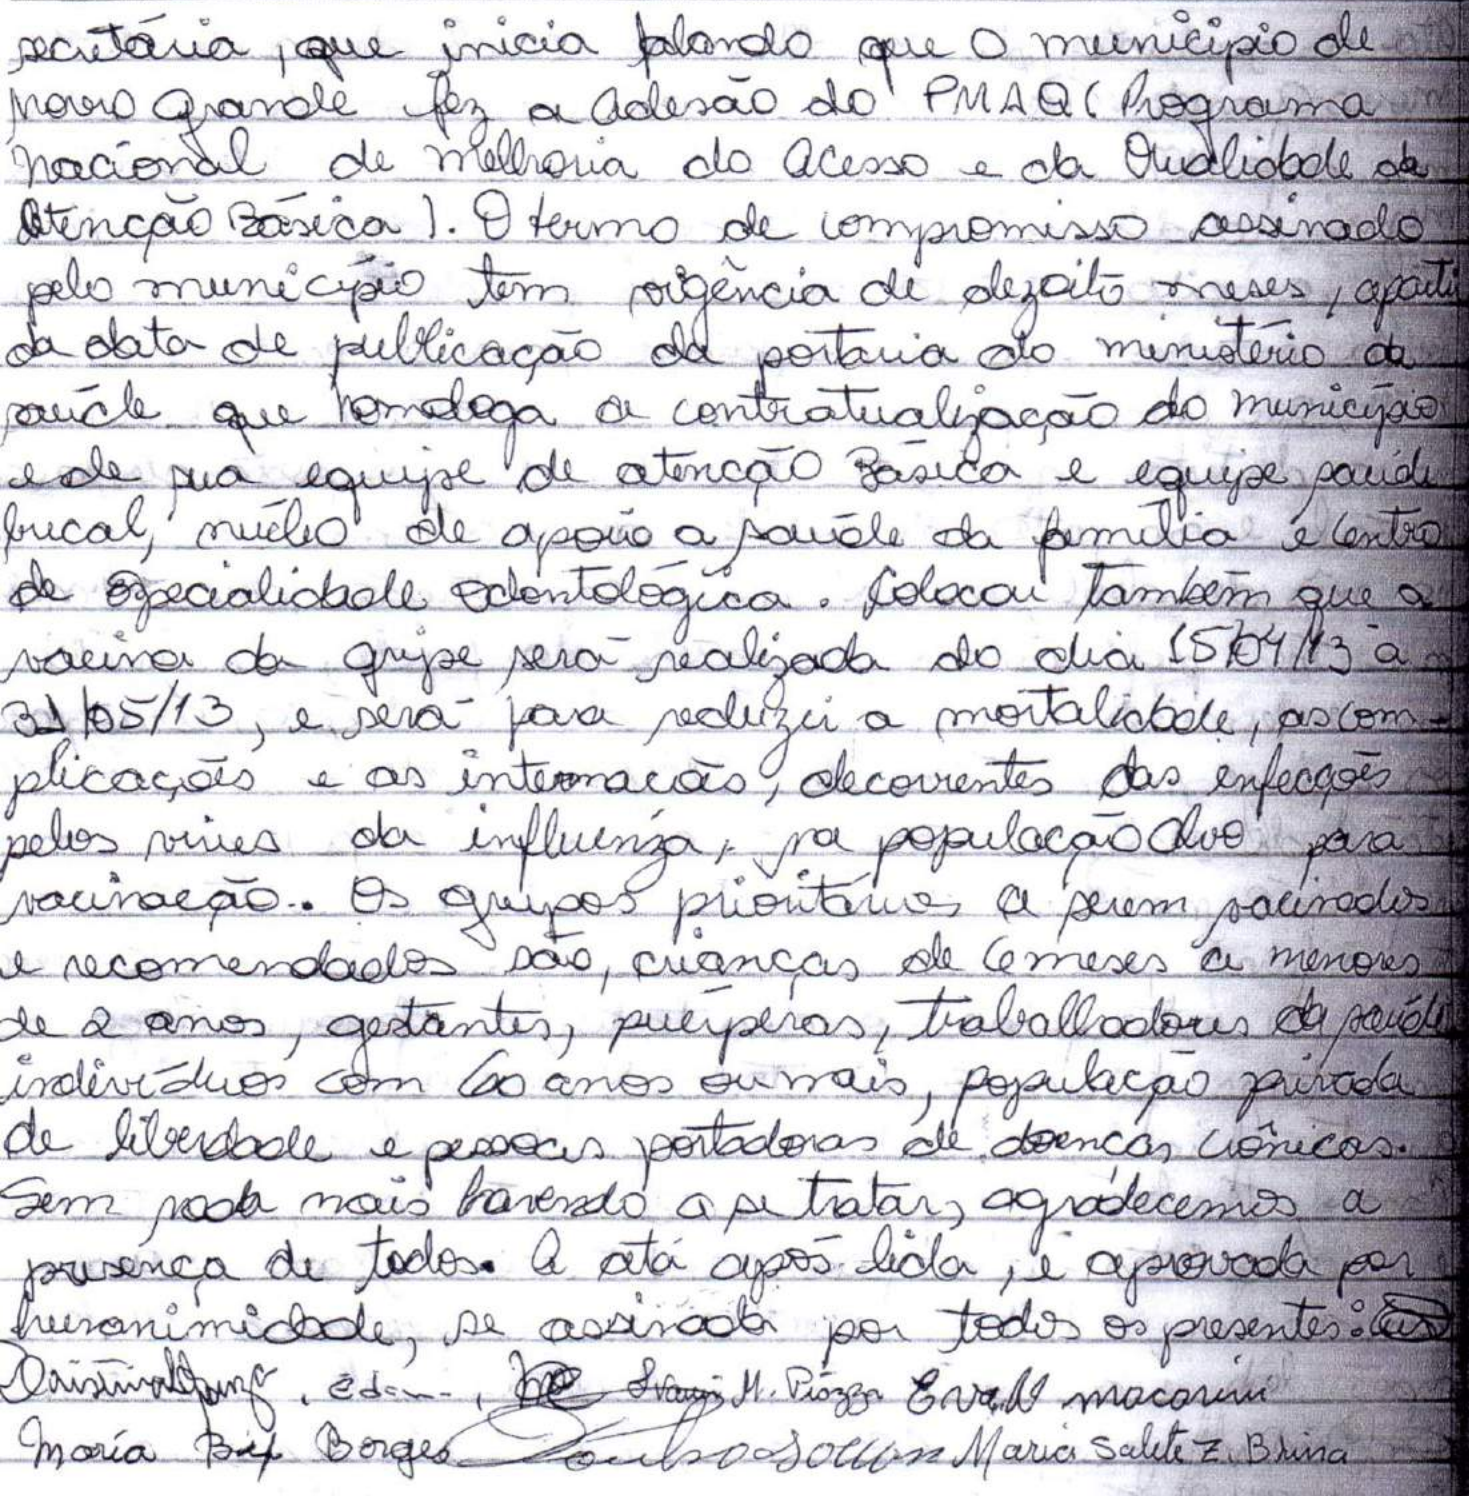 secretária, que inicia falando que o município de
Morro Grande fez a Adesão do PMAQ (Programa
Nacional de Melhoria do Acesso e da Qualidade da
Atenção Básica). O termo de compromisso assinado
pelo município tem vigência de dezoito meses, aparti
da data de publicação da portaria do ministério da
saúde que homologa a contratualização do município
e de sua equipe de atenção Básica e equipe saúde
bucal, núcleo de apoio a saúde da família e Centro
de especialidade odontológica. Colocou também que a
vacina da gripe será realizada do dia 15/04/13 a
31/05/13, e será para reduzir a mortalidade, as com-
plicações e as internações, decorrentes das enfecções
pelos vírus da influenza, na população alvo para
vacinação. Os grupos prioritários a serem vacinados
e recomendados são, crianças de 6 meses a menores
de 2 anos, gestantes, puérperas, trabalhadores da saúde
indivíduos com 60 anos ou mais, população privada
de liberdade e pessoas portadoras de doenças crônicas.
Sem nada mais havendo a se tratar, agradecemos a
presença de todos. A ata após lida, é aprovada por
hunanimidade, se assinada por todos os presentes:
M. Piazza Eva M macarini
Maria Borges Maria Salete Z. Brina